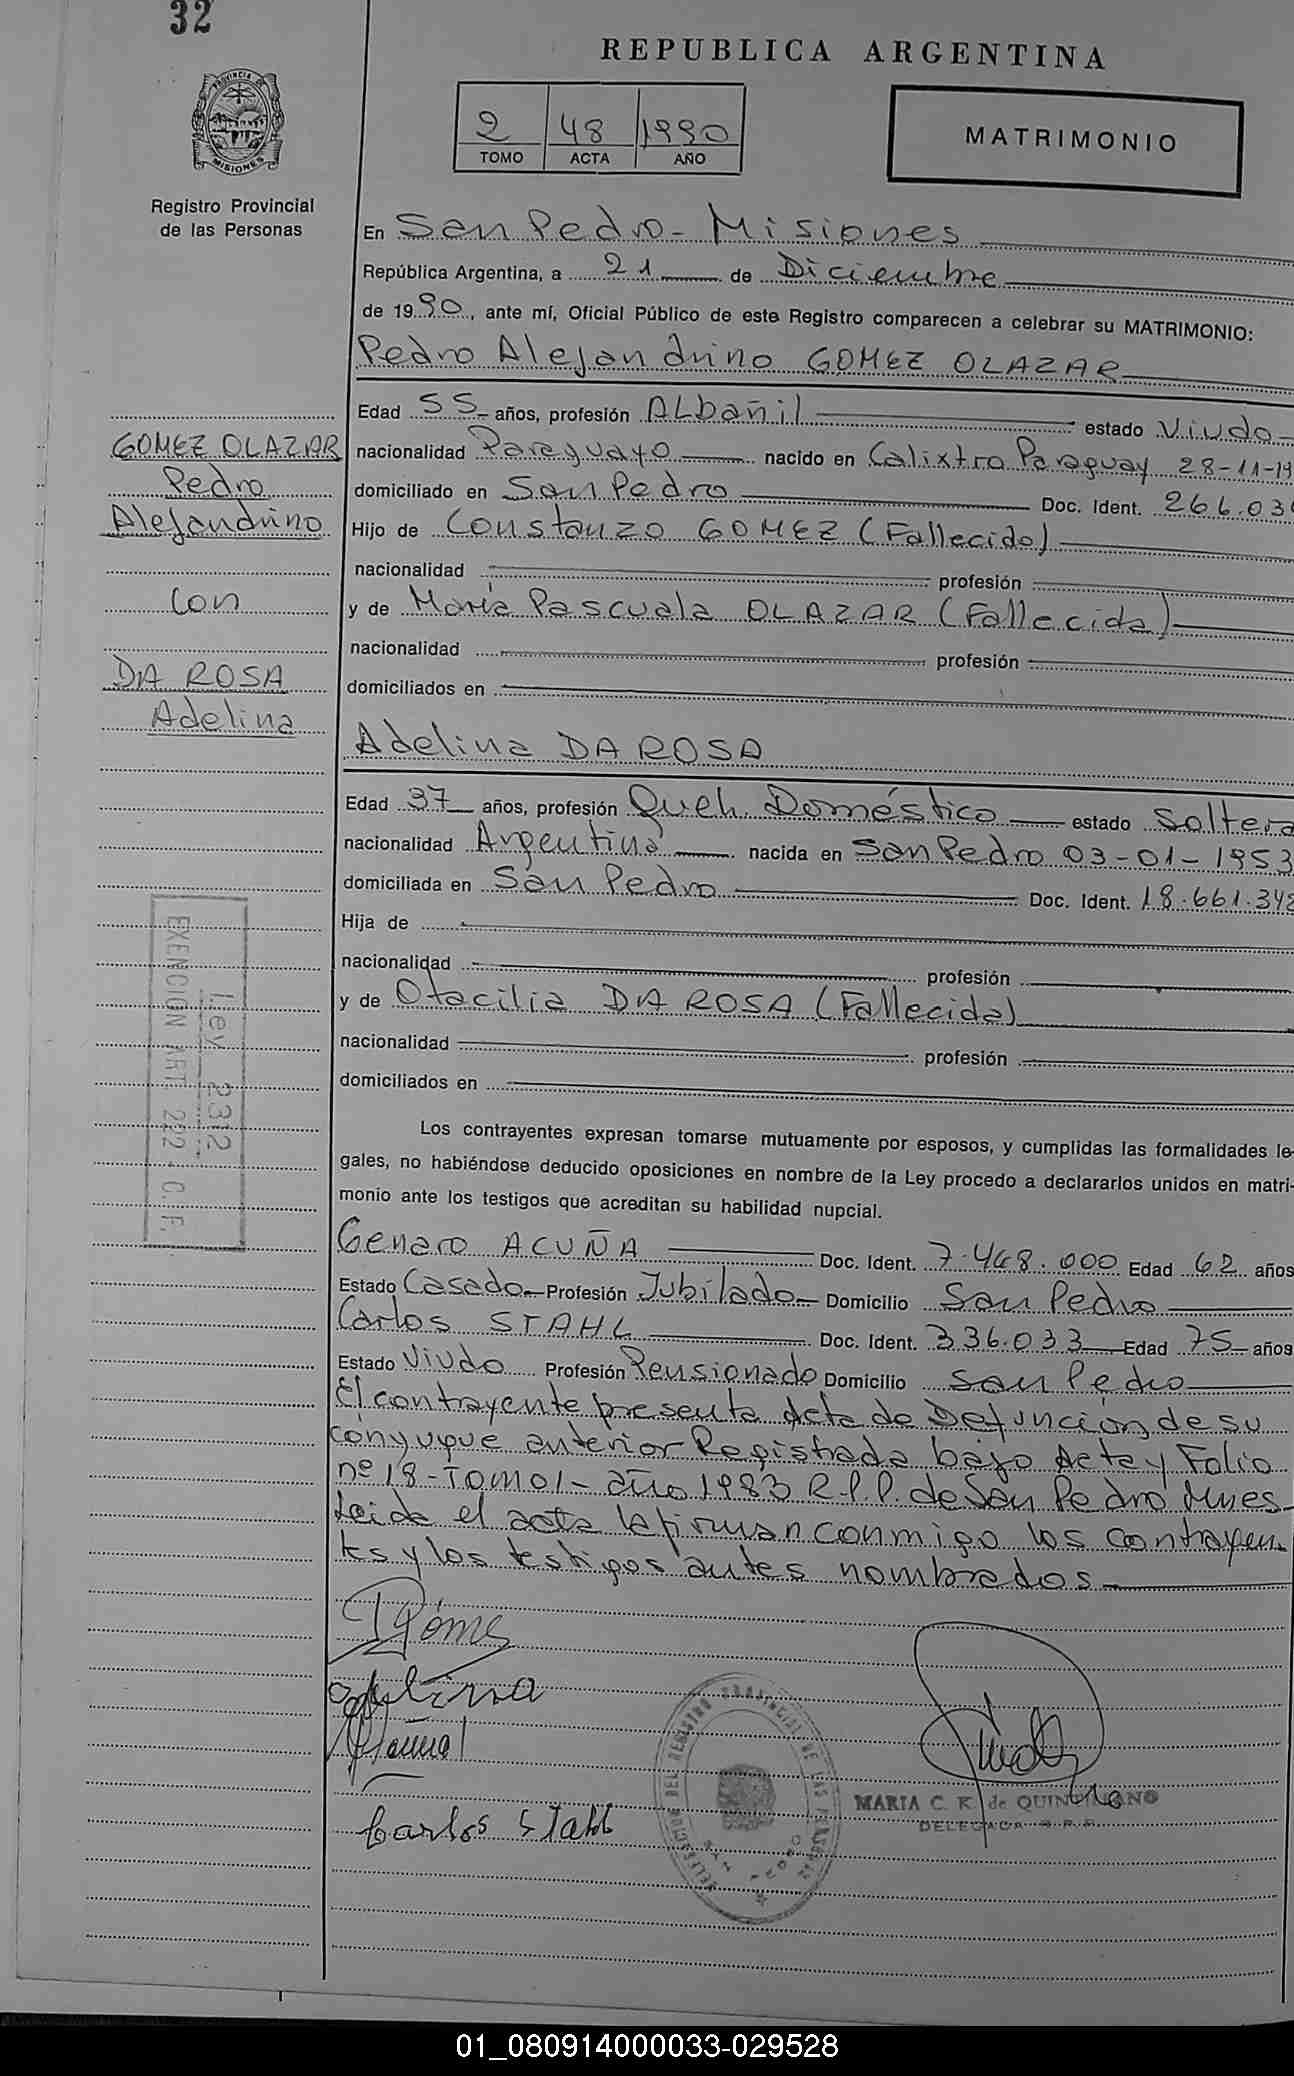 32
REPUBLICA ARGENTINA
PROVINCIA DE
MISIONES
2 48 1990
TOMO ACTA AÑO
MATRIMONIO
Registro Provincial
de las Personas
En San Pedro - Misiones
República Argentina, a 21 de Diciembre
de 1990, ante mí, Oficial Público de este Registro comparecen a celebrar su MATRIMONIO:
Pedro Alejandrino GOMEZ OLAZAR
Edad 55 años, profesión ALbañil estado Viudo
nacionalidad Paraguayo nacido en Calixtro Paraguay 28-11-19
domiciliado en San Pedro Doc. Ident. 266.03
Hijo de Constanzo GOMEZ (Fallecido)
nacionalidad profesión
y de María Pascuala OLAZAR (Fallecida)
nacionalidad profesión
domiciliados en
GOMEZ OLAZAR
Pedro
Alejandrino
con
DA ROSA
Adelina
Adelina DA ROSA
Edad 37 años, profesión Queh. Doméstico estado Soltera
nacionalidad Argentina nacida en San Pedro 03-01-1953
domiciliada en San Pedro Doc. Ident. 18.661.342
Hija de
nacionalidad profesión
y de Otacilia DA ROSA (Fallecida)
nacionalidad profesión
domiciliados en
Ley 2312
EXENCION ART. 222 C. F.
Los contrayentes expresan tomarse mutuamente por esposos, y cumplidas las formalidades le-
gales, no habiéndose deducido oposiciones en nombre de la Ley procedo a declararlos unidos en matri-
monio ante los testigos que acreditan su habilidad nupcial.
Genaro ACUÑA Doc. Ident. 7.468.000 Edad 62 años
Estado Casado Profesión Jubilado Domicilio San Pedro
Carlos STAHL Doc. Ident. 336.033 Edad 75 años
Estado Viudo Profesión Pensionado Domicilio San Pedro
El contrayente presenta Acta de Defunción de su
cónyugue anterior Registrada bajo Acta y Folio
nº 18 - Tomo 1 - año 1983 R.P.P. de San Pedro Mnes
Leida el acta la firman conmigo los contrayen
tes y los testigos antes nombrados
Adelina
Carlos Stahl
DELEGACION DEL REGISTRO PROVINCIAL DE LAS PERSONAS
MARIA C. K. de QUINTANO
DELEGADA R.P.P.
01_080914000033-029528